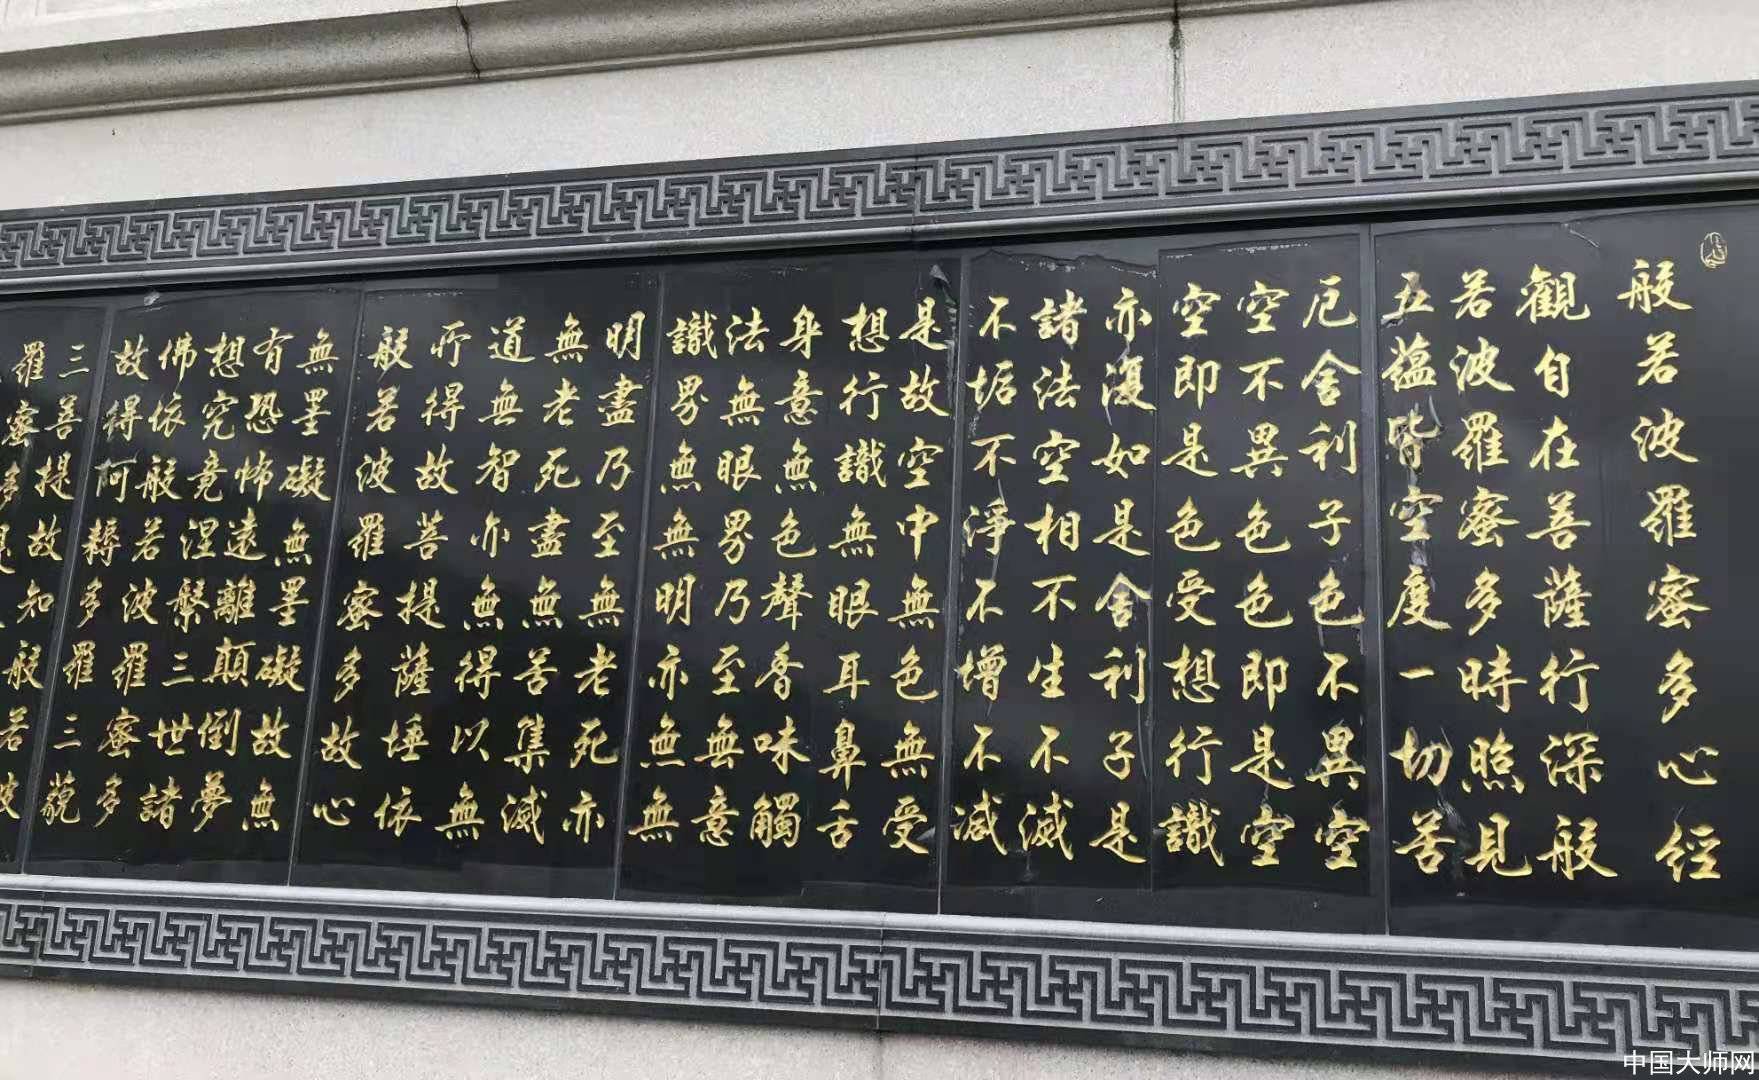 般若波羅蜜多心经
觀自在菩薩行深般
若波羅蜜多時照見
五蕴皆空度一切苦
厄舍利子色不異空
空不異色色即是空
空即是色受想行識
亦復如是舍利子是
諸法空相不生不滅
不垢不淨不增不减
是故空中無色無受
想行識無眼耳鼻舌
身意無色聲香味觸
法無眼界乃至無意
識界無無明亦無無
明盡乃至無老死亦
無老死盡無苦集滅
道無智亦無得以無
所得故菩提薩埵依
般若波羅蜜多故心
無罣礙無罣礙故無
有恐怖遠離顛倒夢
想究竟涅槃三世諸
佛依般若波羅蜜多
故得阿耨多羅三藐
三菩提故知般若波
羅蜜多
中国大师网